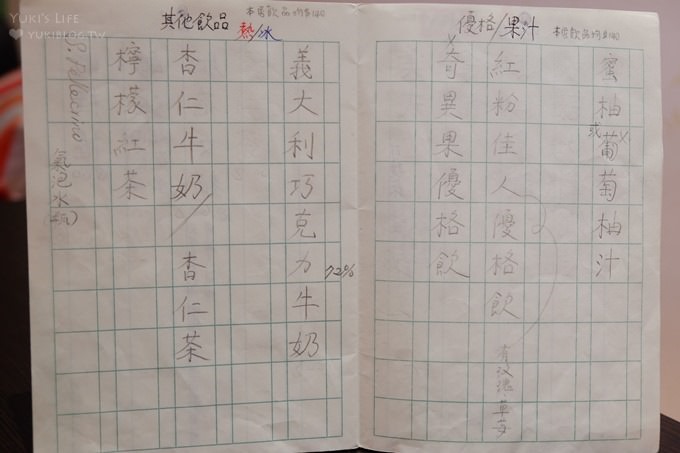 YUKI'S LIFE
YUKIBLOG.TV
優格/果汁
本店飲品均$140
蜜柚或葡萄柚汁
紅粉佳人優格飲
有玫瑰、草莓
奇異果優格飲
其他飲品
本店飲品均$140
熱/冰
義大利巧克力牛奶
72%
杏仁牛奶/杏仁茶
檸檬紅茶
S. Pellegrino
氣泡水(瓶)